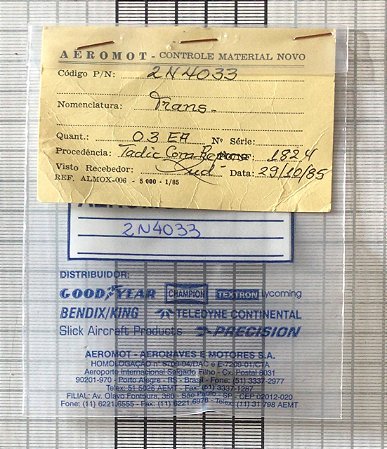 AEROMOT - CONTROLE MATERIAL NOVO
Código P/N: 2N4033
Nomenclatura: Trans.
Quant.: 03 EA Nº Série:
Procedência: Tadic 1824
Visto Recebedor: Data: 29/10/85
REF. ALMOX-006 - 5 000 - 1/85
2N4033
DISTRIBUIDOR:
GOODYEAR CHAMPION TEXTRON Lycoming
BENDIX/KING TELEDYNE CONTINENTAL
Slick Aircraft Products PRECISION
AEROMOT - AERONAVES E MOTORES S.A.
HOMOLOGAÇÃO nº 5700-04/DAC e E-7209-01/CTA
Aeroporto Internacional Salgado Filho - Cx. Postal 8031
90201-970 - Porto Alegre - RS - Brasil - Fone: (51) 3337-2977
Telex: 51-5226 AEMT - Fax:
FILIAL: Av. Olavo Fontoura, 360 - São Paulo - SP - CEP 02012-020
Fone: (11) 6221.6555 - Fax: (11) - Telex: (11) 31-798 AEMT